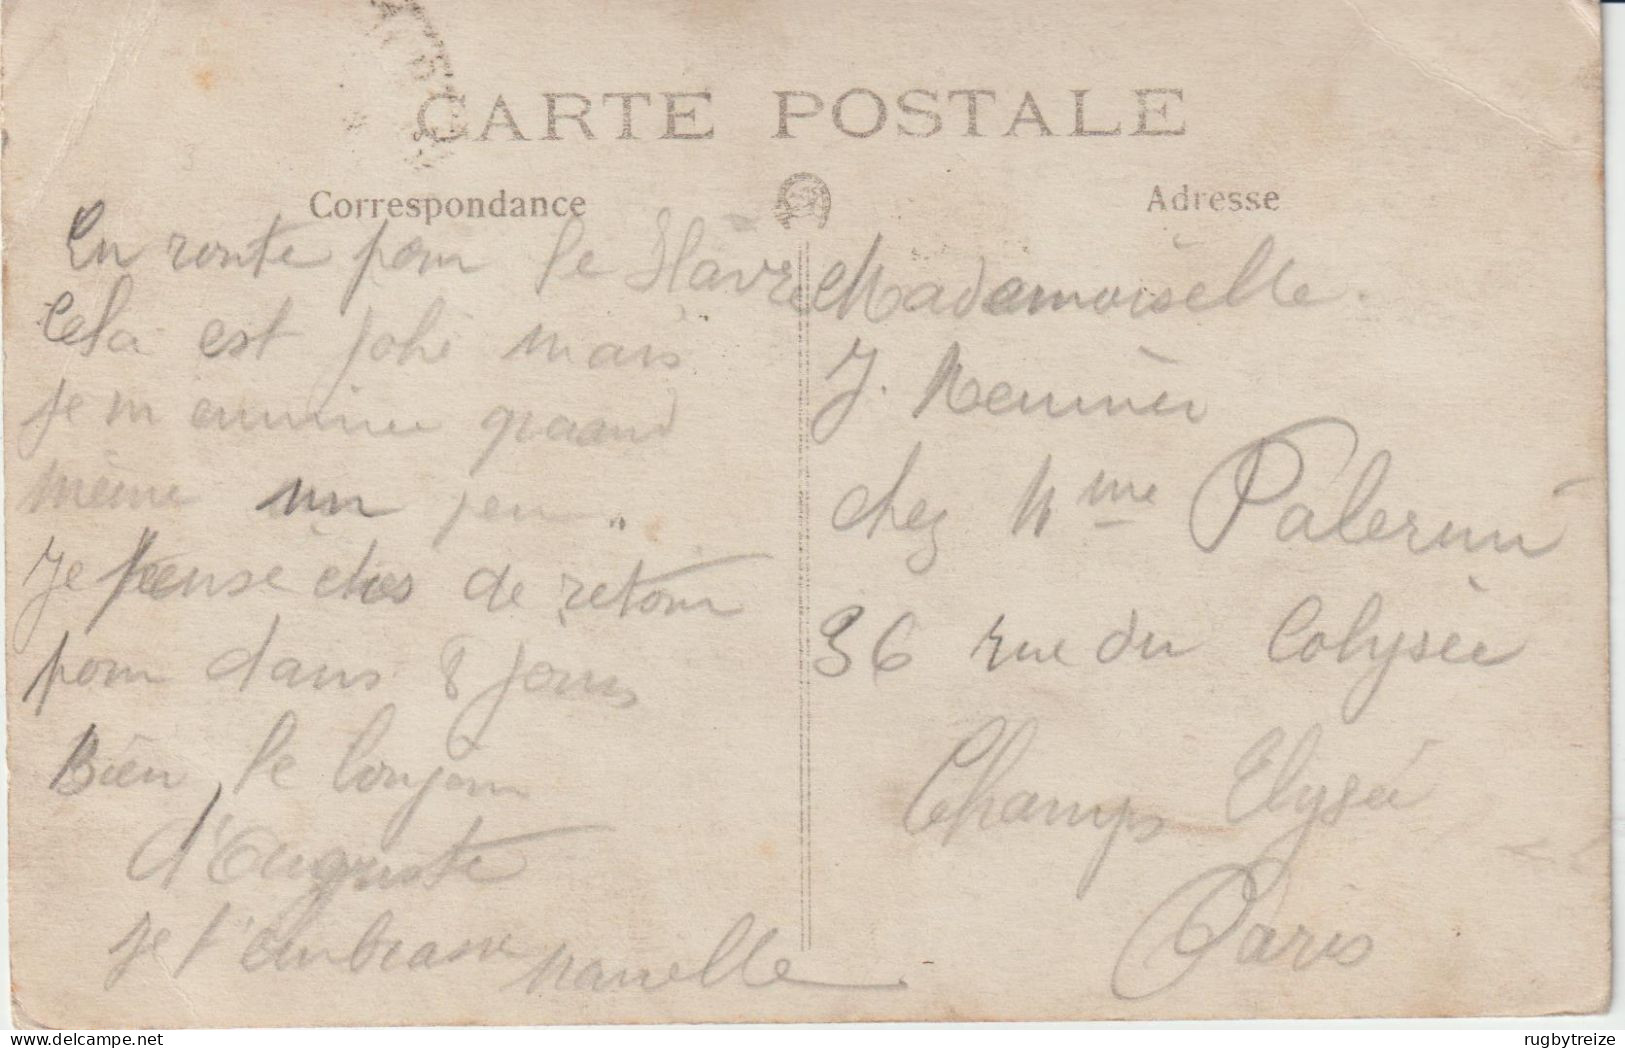 CARTE POSTALE
Correspondance
En route pour le Hâvre
Cela est joli mais
je m'ennuie quand
même un peu.
Je pense être de retour
pour dans 8 jours
Bien le bonjour
d'Auguste
je t'embrasse
Adresse
Mademoiselle.
J.
chez Mme Palerm
36 rue du Colysée
Champs Elysée
Paris
rugbytreize